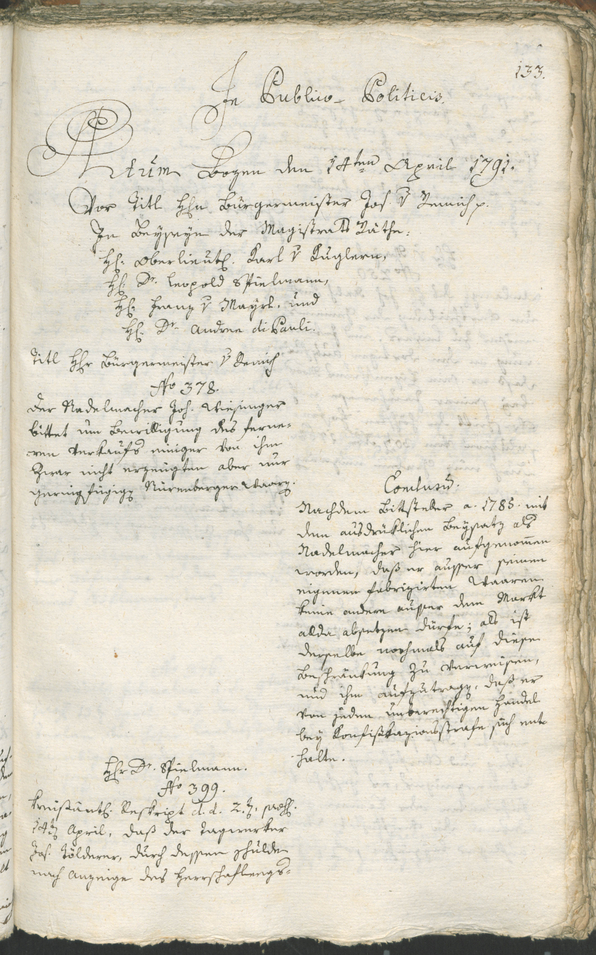 133.
In Publico-Politicis.
Actum Bozen den 14ten April 1791.
Vor Titl Hhn Bürgermeister Jos. v Remich p.
In Beyseyn der Magistrats Räthe:
Hh. Oberlieut. Karl v Kuglern,
Hh. Dr. Leopold Spielmann,
Hh. Franz v Mayrl, und
Hh. Dr. Andree di Pauli.
Titl Hhr Bürgermeister v Remich
No 378.
Der Nadelmacher Joh. Wisinger
bittet um Bewilligung des ferne-
ren Verkaufs einiger von ihm
zwar nicht erzeugten aber nur
geringfügigen Nürenberger Waaren.
Conclusum.
Nachdem Bittsteller a. 1785 mit
dem ausdrüklichen Beysatz als
Nadelmacher hier aufgenommen
worden, daß er ausser seinen
eigenen fabrizirten Waaren
keine andere ausser dem Markt
alda absetzen dürfe; als ist
derselbe nochmals auf diese
Beschränkung zu verweisen,
und ihm aufzutragen, daß er
von jedem unberechtigen Handel
bey Konfiskazionsstrafe sich ent-
halte.
Hhr Dr. Spielmann.
No 399.
Kreisämtl. Reskript d.d. 2. pss.
14ten April, daß der Tagwerker
Jos. Tölderer, durch dessen Schulden
nach Anzeige des Herrschaftengs-